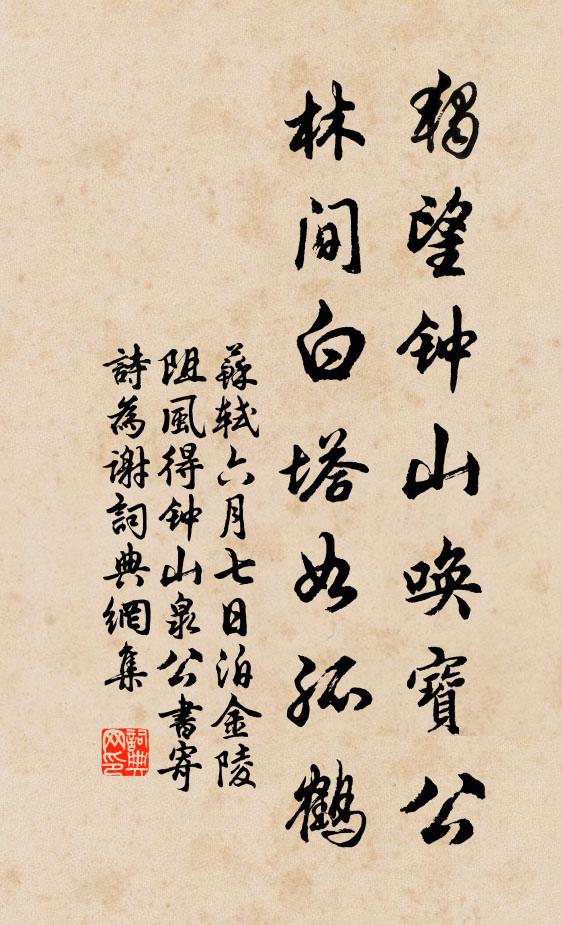 獨望钟山唤寶公
林间白塔如孤鶴
蘇軾六月七日泊金陵
阻風得钟山泉公書寄
詩為谢詞典網集
詞典
网印